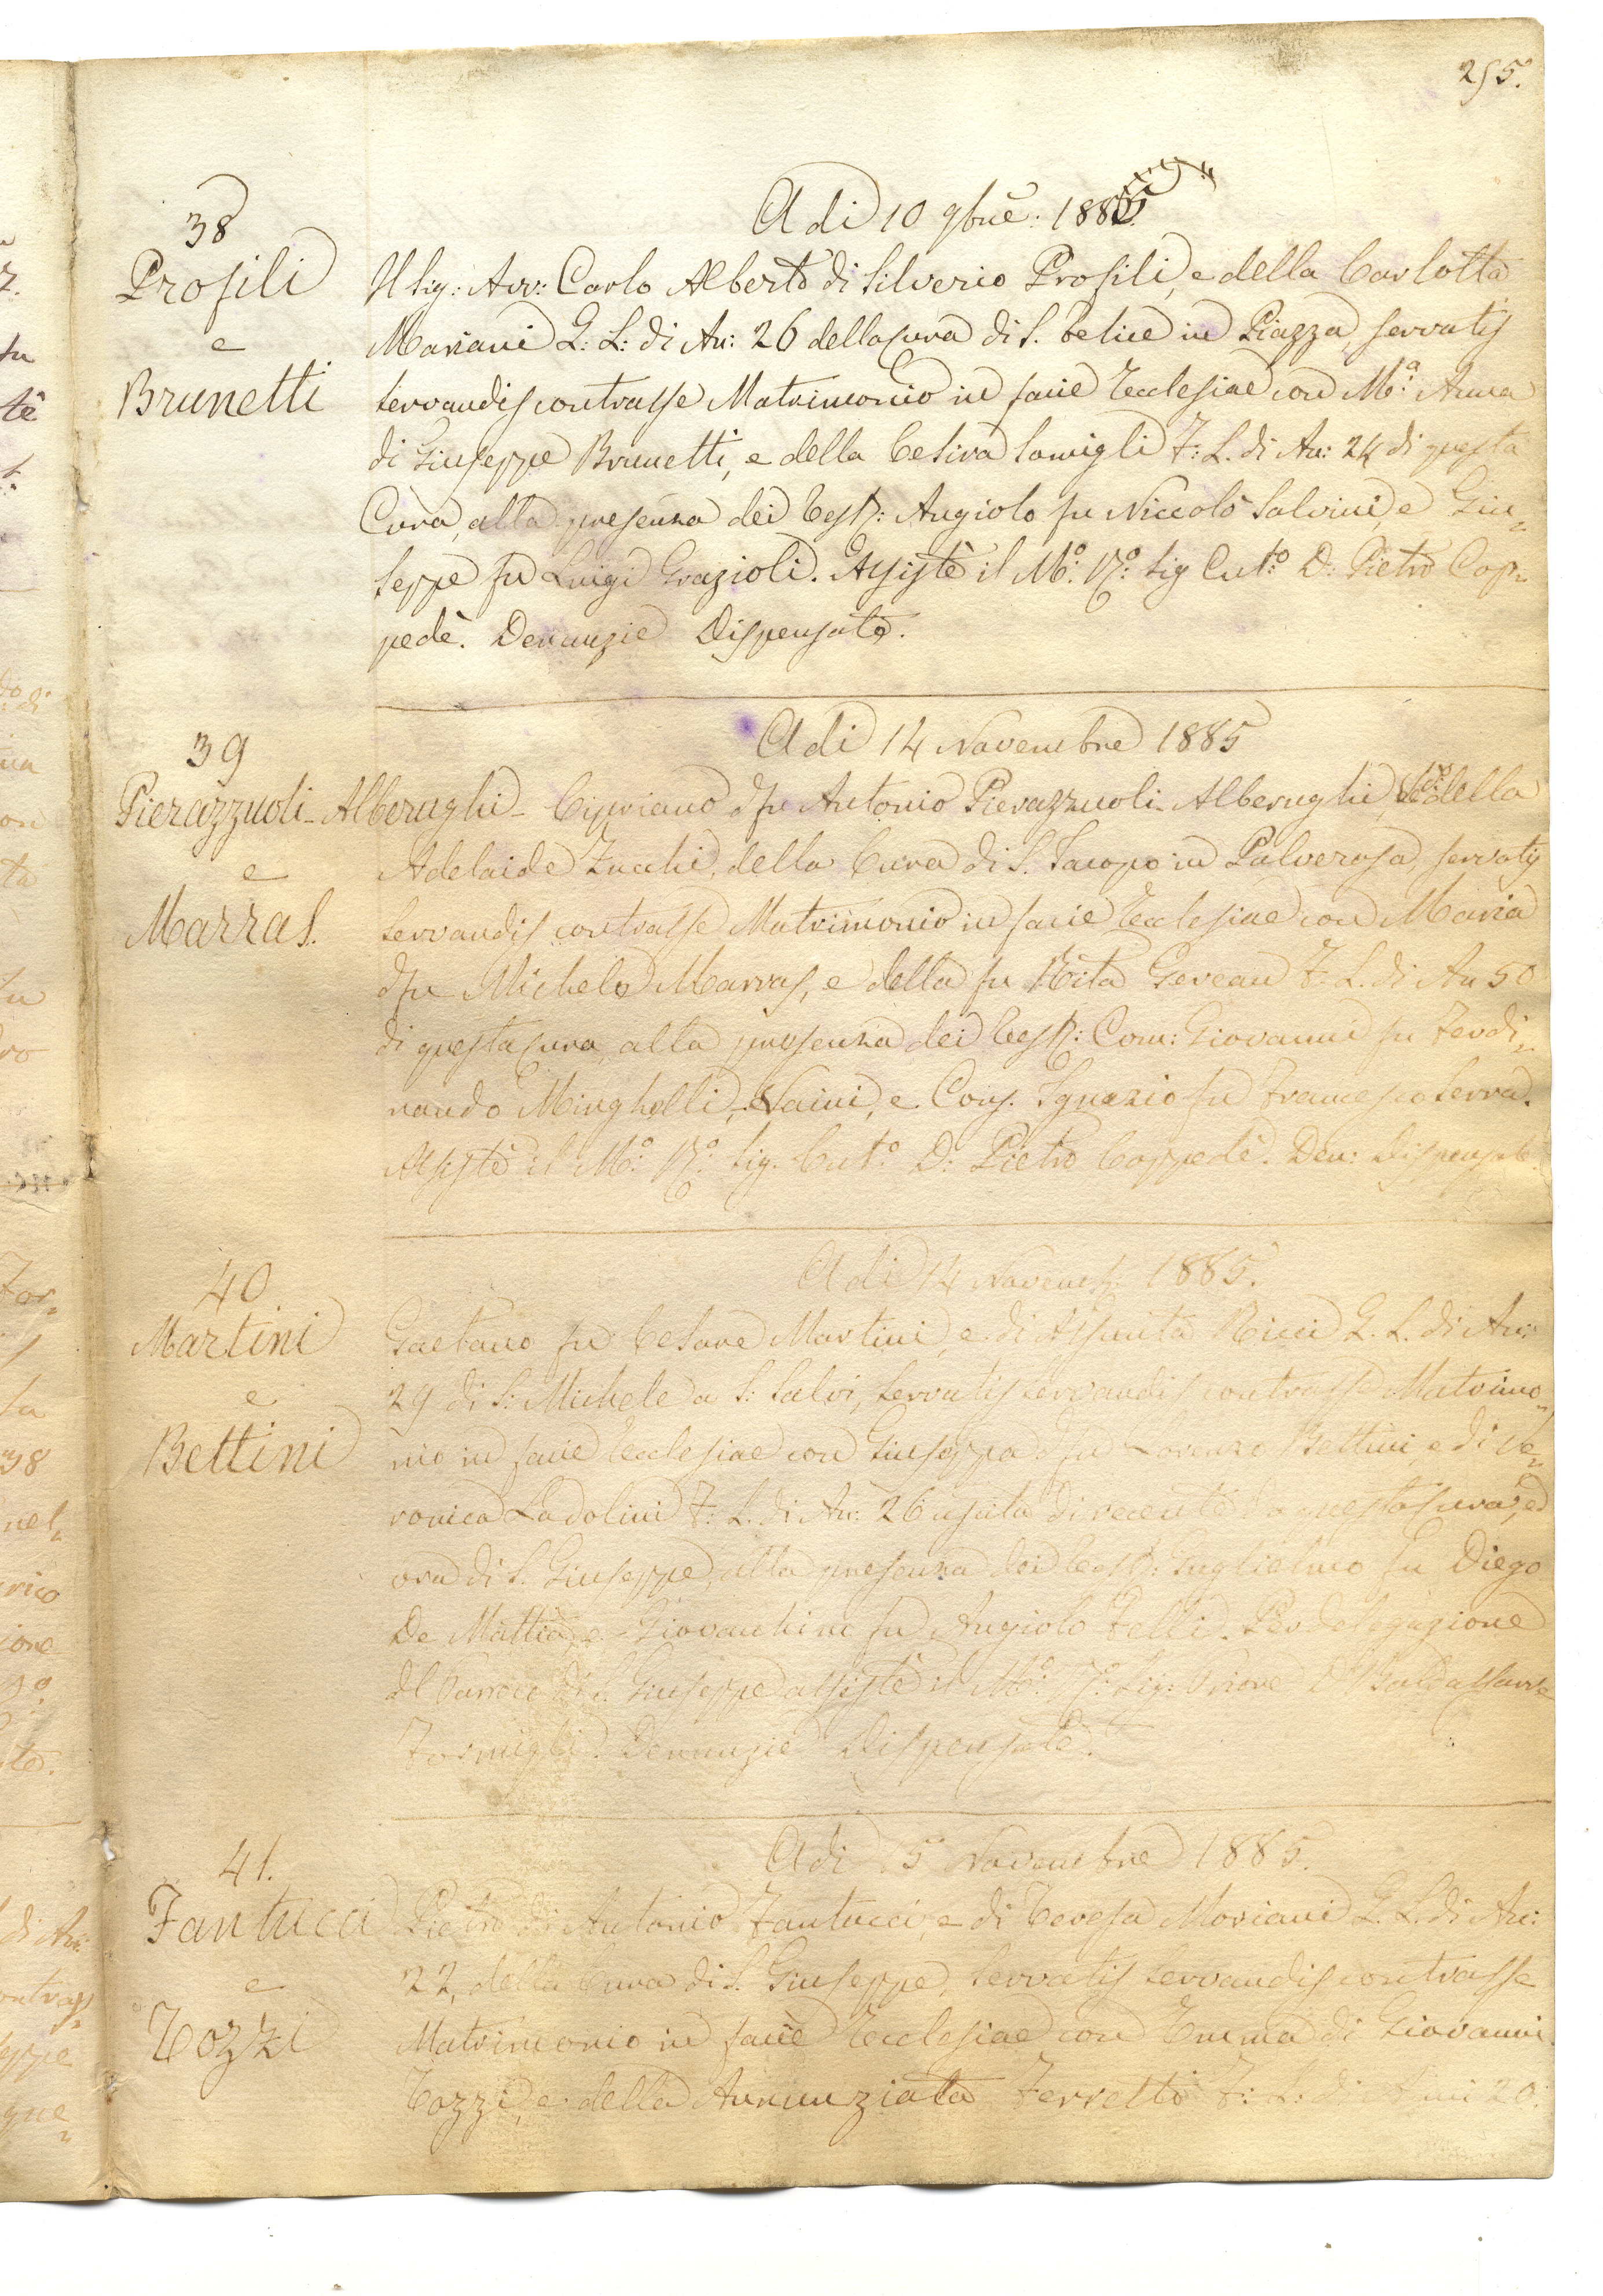 255.
38
Profili
e
Brunetti
A dì 10 9bre: 1885.
Il Sig: Avv: Carlo Alberto di Silverio Profili, e della Carlotta
Mariani G: L: di An: 26 della Cura di S. Felice in Piazza, servatis
servandis contrasse Matrimonio in facie Ecclesiae con Mª. Anna
di Giuseppe Brunetti, e della Cesira F: L. di An: 24 di questa
Cura, alla presenza dei Test: Angiolo fu Niccolò Salvini, e Giu=
seppe fu Luigi Grazioli. Assistè il Mº. Rº: Sig Cutº: D: Pietro Cop=
pedè. Denunzie Dispensate.
39
Pierazzuoli-Alberughi
e
Marras.
A dì 14 Novembre 1885
Cipriano del fu Antonio Pierazzuoli-Alberughi, della
Adelaide Zucchi, della Cura di S. Jacopo in Polverosa, servatis
servandis contrasse Matrimonio in facie Ecclesiae con Maria
del fu Michele Marras, e della fu Rita Gereau F. L. di An 50
di questa Cura, alla presenza dei Test: Com: Giovanni fu Ferdi=
nando Minghelli-Vaini, e Cons. Ignazio fu Francesco Serra.
Assistè il Mº: Rº: Sig. Cutº. D: Pietro Coppedè. Den: Dispensate.
40
Martini
e
Bettini
A dì 14 Novembre 1885.
Gaetano fu Cesare Martini, e di Assunta Ricci G. L. di An:
29 di S: Michele a S: Salvi, servatis servandis contrasse Matrimo=
nio in facie Ecclesiae con Giuseppa del fu Lorenzo Bettini, e di Ve=
ronica Ladolini F: L. di An: 26 uscita di recente da questa Cura, ed
ora di S. Giuseppe, alla presenza dei Test: Guglielmo fu Diego
De Mattia, e Giovacchino fu Angiolo Felli. Per delegazione
del Parroco di S. Giuseppe assistè il Mº: Rº: Sig: Priore D. Baldassarre
Formigli. Denunzie Dispensate.
41.
Fantucci
e
Tozzi
A dì 15 Novembre 1885.
Pietro di Antonio Fantucci, e di Teresa Moriani G. L. di An:
22, della Cura di S. Giuseppe, servatis servandis contrasse
Matrimonio in facie Ecclesiae con Emma di Giovanni
Tozzi, e della Annunziata Ferretti F: L: di Anni 20: